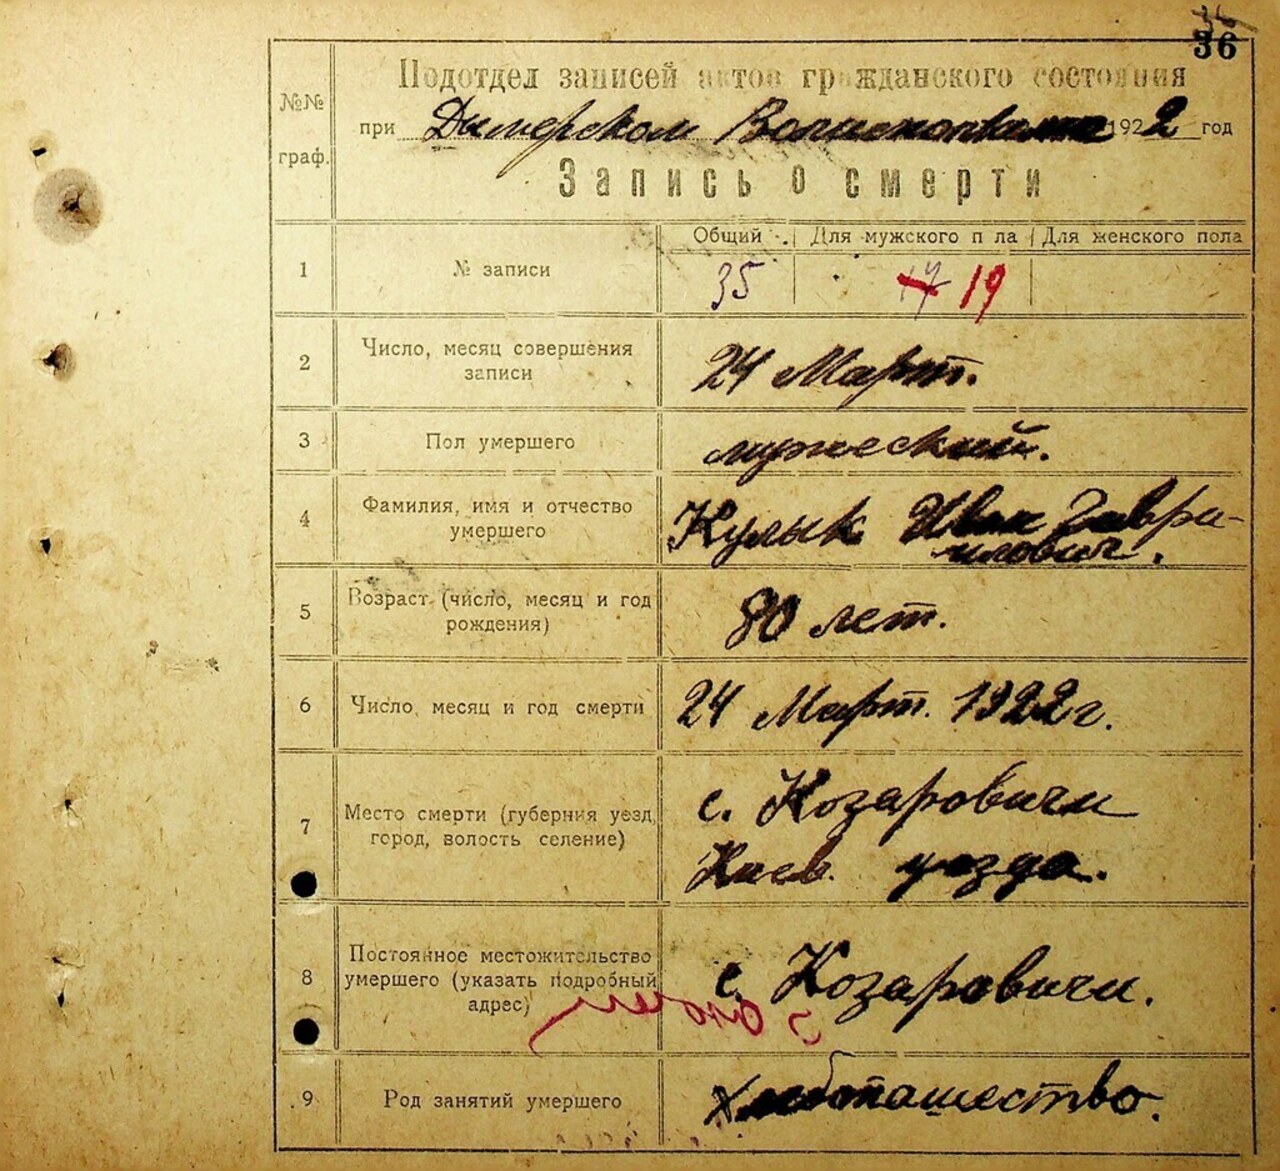 36
36
Подотдел записей актов гражданского состояния
№№
граф.
при Дымерском Волисполкоме 1922 год
Запись о смерти
Общий Для мужского пола Для женского пола
1 № записи 35 17 19
2 Число, месяц совершения
записи
24 Март.
3 Пол умершего мужеский.
4 Фамилия, имя и отчество
умершего
Кулык Иван Гаври-
илович.
5 Возраст (число, месяц и год
рождения)
80 лет.
6 Число, месяц и год смерти 24 Март. 1922 г.
7 Место смерти (губерния уезд,
город, волость селение)
с. Козаровичи
Киев. уезда.
8 Постоянное местожительство
умершего (указать подробный
адрес)
с. Козаровичи.
9 Род занятий умершего Хлебопашество.